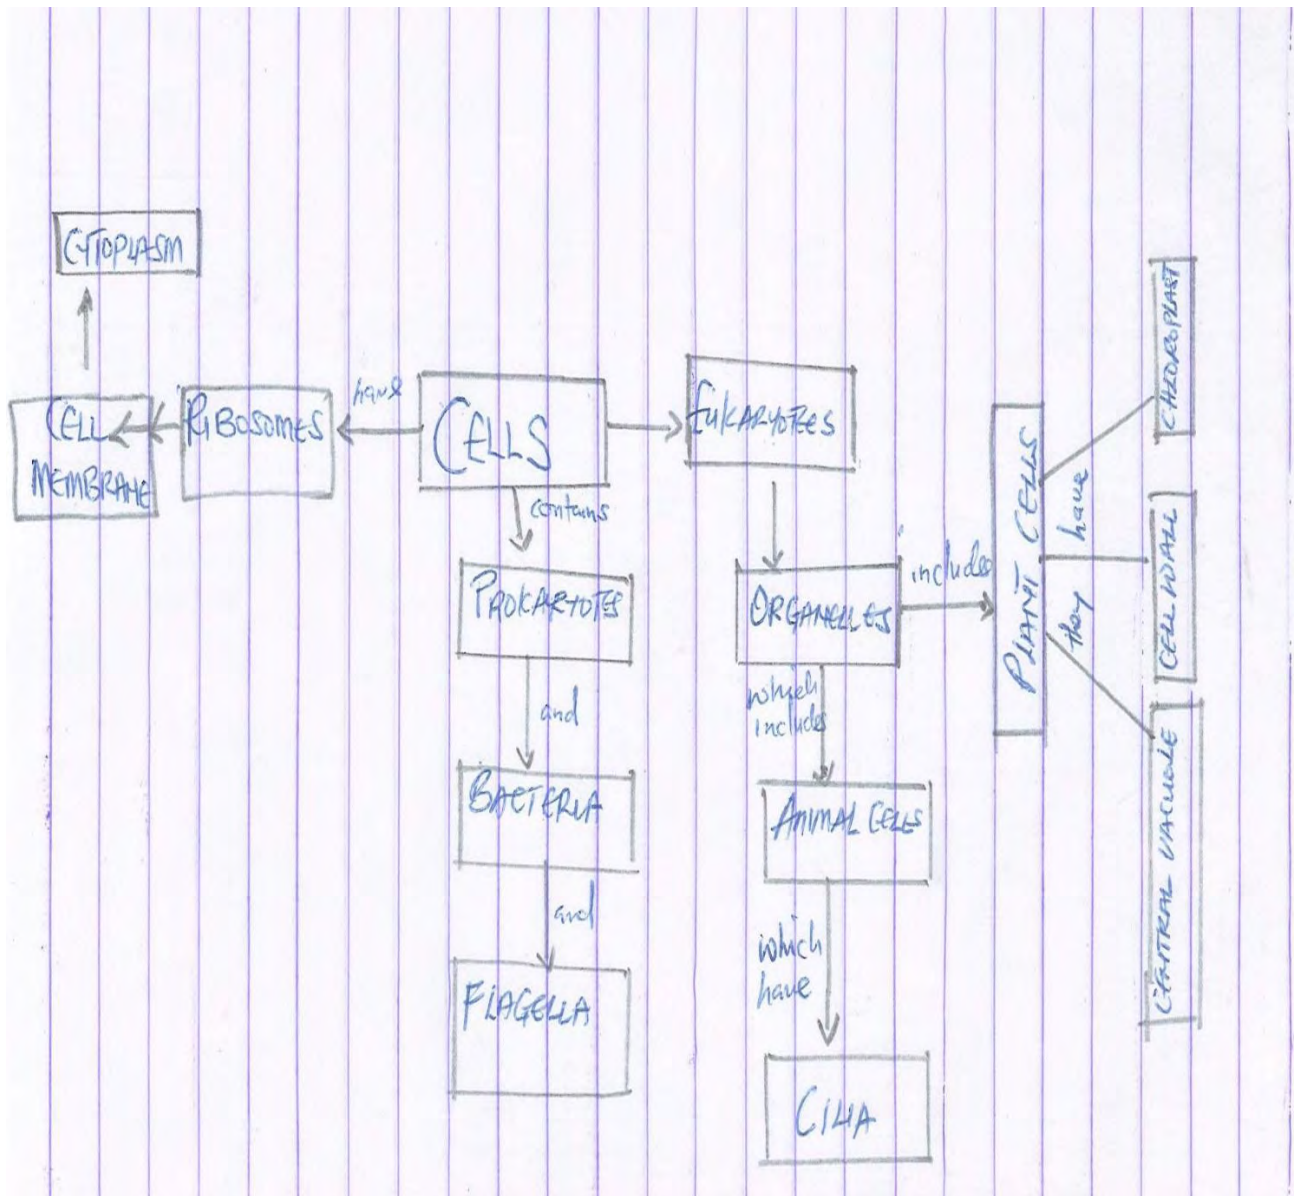 CYTOPLASM
CELL
MEMBRANE
RIBOSOMES
have
CELLS
contains
PROKARYOTES
and
BACTERIA
and
FLAGELLA
EUKARYOTES
ORGANELLES
which
includes
ANIMAL CELLS
which
have
CILIA
includes
PLANT CELLS
they have
CHLOROPLAST
CELL WALL
CENTRAL VACUOLE